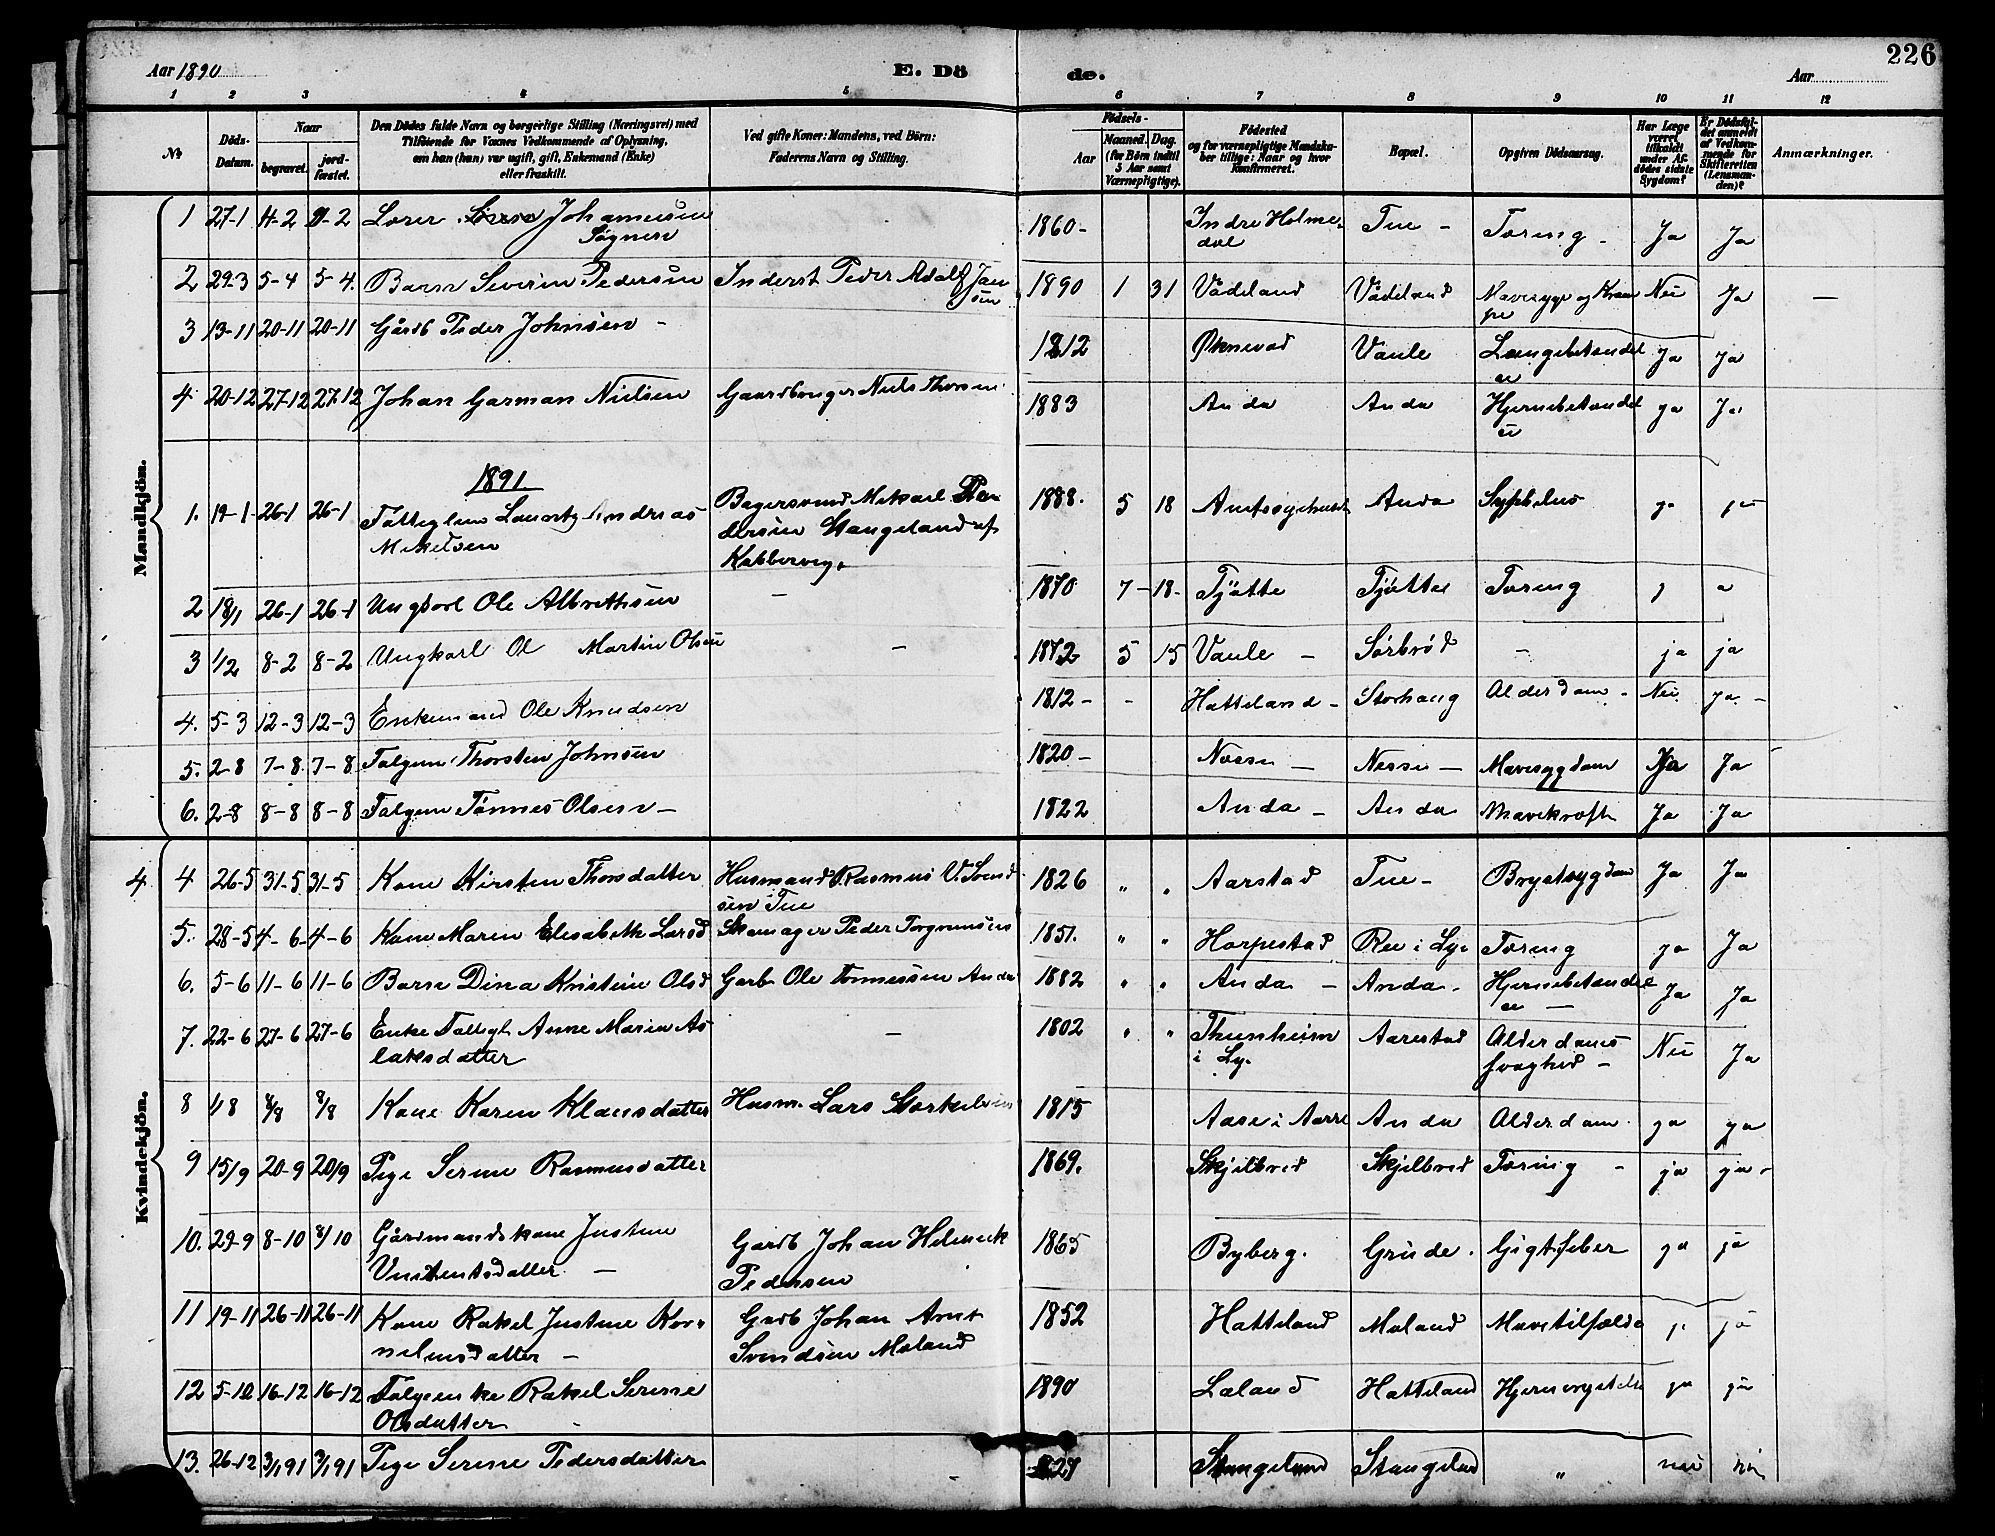 226
Aar 1890
E. Dö
de.
Aar
1 2 3 4 5 6 7 8 9 10 11 12
№
Döds-Datum.
Naar
begravet.
jord-fæstet.
Den Dödes fulde Navn og borgerlige Stilling (Næringsvei) med
Tilföiende for Voxnes Vedkommende af Oplysning,
om han (hun) var ugift, gift, Enkemand (Enke)
eller fraskilt.
Ved gifte Koner: Mandens, ved Börn:
Faderens Navn og Stilling.
Födsels-
Aar
Maaned. Dag.
(for Börn indtil
5 Aar samt
Værnepligtige).
Födested
og for værnepligtige Mandska-
ber tillige: Naar og hvor
konfirmeret.
Bopæl.
Opgiven Dödsaarsag.
Har Læge
været
tilkaldt
under Af-
dödes sidste
Sygdom?
Er Dödsfal-
det anmeldt
af Vedkom-
mende for
Skifteretten
(Lensman-
den)?
Anmærkninger.
Mandkjön.
1 27-1 11-2 11-2 Johannesen 1860- Indre Holme- Tue - Tæring - Ja Ja
Søgnen dal
2 29-3 5-4 5-4. Barn Severin Pedersen Inderst Peder Adolf Jan 1890 1 31 Vådeland Vådeland Mavesyge og Kram Nei Ja —
sen pe
3 13-11 20-11 20-11 Gårdb Peder Johnsen - 1812 Øknevad Vaule Lungebetændel Ja Ja
se
4. 20-12 27-12 27-12 Johan Garman Nielsen Gaardbruger Niels Thorsen 1883 Anda Anda Hjernebetændel ja Ja
se
1891.
1. 19-1 26-1 26-1 Fattiglem Lauritz Andreas 1888. 5 18 Amtssygehuset Anda Syphilis ja ja
Mikelsen Stangeland af
2 18/1 26-1 26-1 Ungkarl Ole Albrethsen — 1870 7- 18- Tjøtte Tjøtte Tæring
3 1/2 8-2 8-2 Ungkarl Ol Martin Olsen — 1872 5 15 Vaule - Sørbrød - ja ja
4. 5-3 12-3 12-3 Enkemand Ole Knudsen 1812- - Hatteland - Storhaug Alderdom - Nei Ja -
5. 2-8 7-8 7-8 Følgem Thorsten Johnsen 1820- Nesse - Nesse — Mavesygdom Ja Ja
6. 2-8 8-8 8-8 Følgem Tønnes Olsen — 1822 Anda - Anda Mavekræft Ja Ja
Kvindekjön.
4 4 26-5 31-5 31-5 Kone Kirsten Thorsdatter Husmand Rasmus V. Svend 1826 " " Aarstad Tue - Brystsygdom Ja Ja
sen Tue
5. 28-5 4-6 4-6 Kone Maren Elisabeth Larsd Skomager Peder Torgrimsen 1851. " " Horpestad Ree i Ly. Tæring ja Ja
6. 5-6 11-6 11-6 Barn Dina Kristine Olsd Garb Ole Tønnessen Anda 1882 " " Anda - Anda - Hjernebetændel Ja Ja
se —
7. 22-6 27-6 27-6 Enke Fattigl Anne Marin As — 1802 " " Thunheim Aarestad Alderdoms Nei Ja
laksdatter i Ly. svaghed -
8 1/8 8/8 8/8 Kone Karen Klausdatter Husm. Lars 1815 Aase i Aarre Anda Alderdom. ja ja
9 15/9 20-9 20/9 Pige Serine Rasmusdatter 1869. Skjelbred Skjelbred Tæring - ja ja -
10. 29-9 8-10 8/10 Gårdmandskone Justine Gardb Johan Helmick 1865 Byberg. Grude. Gigtfeber ja ja
— Pedersen
11 19-11 26-11 26-11 Kone Rakel Justine Kor- Gardb Johan Arnt 1852 Hatteland Moland Mavetilfælde ja
neliusdatter — Svendsen Moland
12 5-12 16-12 16-12 Følgeenke Rakel Serine 1890 Laland Hatteland ja ja
Olsdatter -
13. 26-12 3/1 91 3/1 91 Pige Serine Pedersdatter 1827 Stangeland Stangeland " nei nei